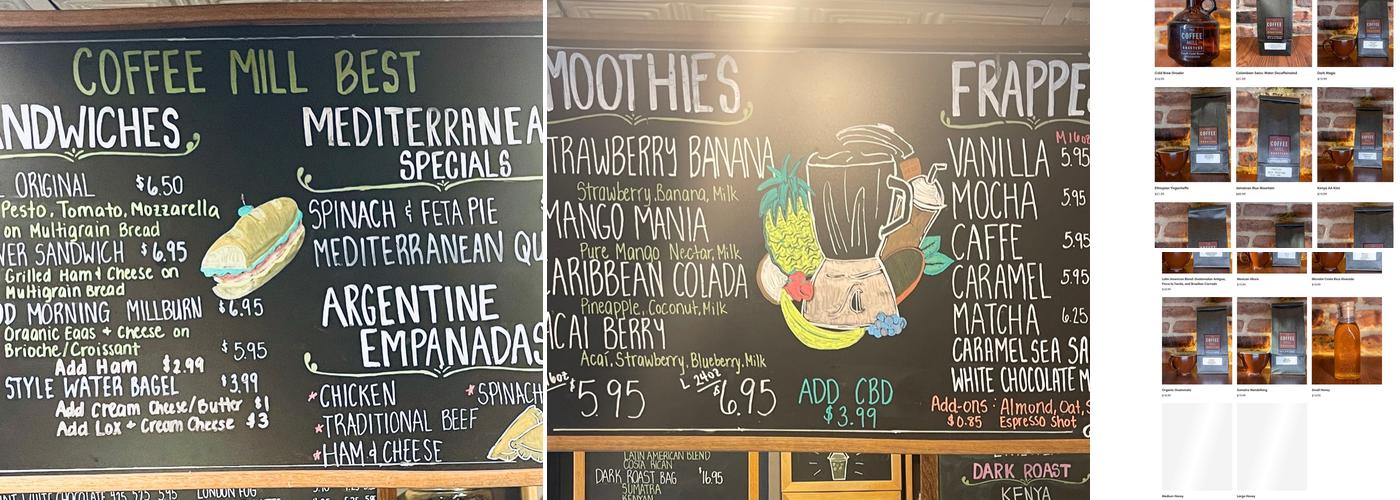 COFFEE MILL BEST
NDWICHES
ORIGINAL $6.50
Pesto, Tomato, Mozzarella
on Multigrain Bread
VER SANDWICH $6.95
Grilled Ham & Cheese on
Multigrain Bread
OD MORNING MILLBURN $6.95
Organic Eggs + Cheese on
Brioche/Croissant $5.95
Add Ham $2.99
STYLE WATER BAGEL $3.99
Add Cream Cheese/Butter $1
Add Lox + Cream Cheese $3
MEDITERRANEA
SPECIALS
SPINACH & FETA PIE
MEDITERRANEAN QU
ARGENTINE
EMPANADAS
*CHICKEN *SPINACH
*TRADITIONAL BEEF
*HAM & CHEESE
LONDON FOG
MOOTHIES
TRAWBERRY BANANA
Strawberry, Banana, Milk
MANGO MANIA
Pure Mango Nectar, Milk
ARIBBEAN COLADA
Pineapple, Coconut, Milk
ACAI BERRY
Acai, Strawberry, Blueberry, Milk
16oz $5.95 L 24oz $6.95
ADD CBD
$3.99
FRAPPE
M 16oz
VANILLA 5.95
MOCHA 5.95
CAFFE 5.95
CARAMEL 5.95
MATCHA 6.25
CARAMEL SEA SA
WHITE CHOCOLATE M
Add-ons: Almond, Oat, S
$0.85 Espresso Shot
LATIN AMERICAN BLEND
COSTA RICAN
DARK ROAST BAG $16.95
SUMATRA
KENYAN
DARK ROAST
KENYA
COFFEE
MILL
ROASTERS
Cold Brew Growler
Colombian Swiss Water Decaffeinated
Dark Magic
Ethiopian Yirgacheffe
Jamaican Blue Mountain
Kenya AA Kirui
Organic Guatemala
Sumatra Mandheling
Small Honey
Medium Honey
Large Honey